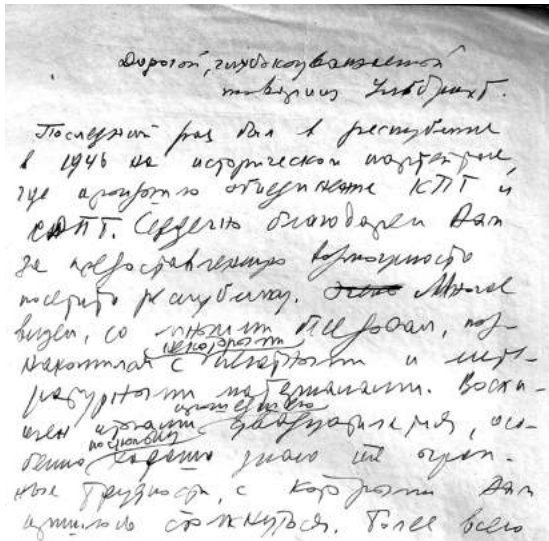 Дорогой, глубокоуважаемый
товарищ Ульбрихт.
Последний раз был в республике
в 1946 на историческом партейтаге,
где произошло объединение КПГ и
СДПГ. Сердечно благодарен Вам
за предоставленную возможность
посетить республику. Многое
видел, со многими беседовал, поз-
накомился с некоторыми печатными и лите-
ратурными материалами. Восхи-
щен итогами двадцатилетия, осо-
бенно поскольку знаю те огром-
ные трудности, с которыми Вам
пришлось столкнуться. Более всего